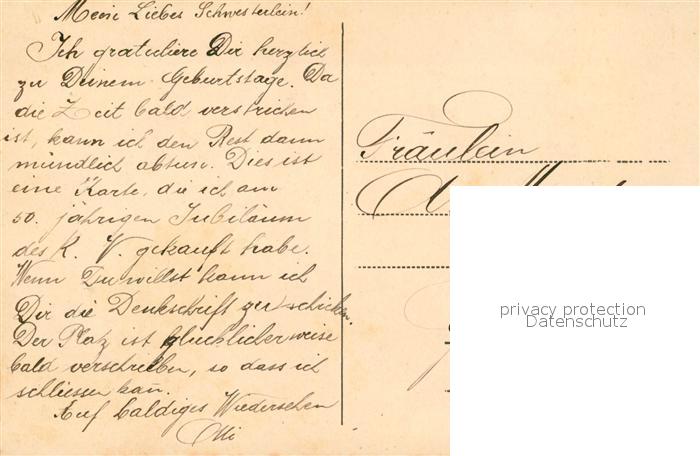 Mein Liebes Schwesterlein!
Ich gratuliere Dir herzlich
zu Deinem Geburtstage. Da
die Zeit bald verstrichen
ist, kann ich den Rest dann
mündlich abtun. Dies ist
eine Karte, die ich am
50. jährigen Jubiläum
des K. V. gekauft habe.
Wenn Du willst kann ich
Dir die Denkschrift zu schicken.
Der Platz ist glücklicherweise
bald verschrieben, so dass ich
schliessen kann.
Auf baldiges Wiedersehen
Otti
Fräulein
privacy protection
Datenschutz